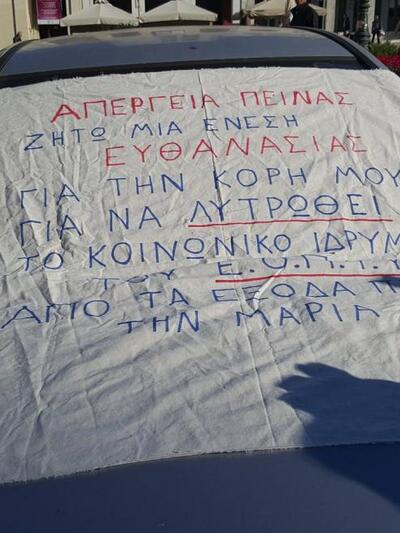 ΑΠΕΡΓΕΙΑ ΠΕΙΝΑΣ
ΖΗΤΩ ΜΙΑ ΕΝΕΣΗ
ΕΥΘΑΝΑΣΙΑΣ
ΓΙΑ ΤΗΝ ΚΟΡΗ ΜΟΥ
ΓΙΑ ΝΑ ΛΥΤΡΩΘΕΙ
ΤΟ ΚΟΙΝΩΝΙΚΟ ΙΔΡΥΜ
ΤΟΥ Ε.Ο.Π.Υ
ΑΠΟ ΤΑ ΕΞΟΔΑ Π
ΤΗΝ ΜΑΡΙΑ